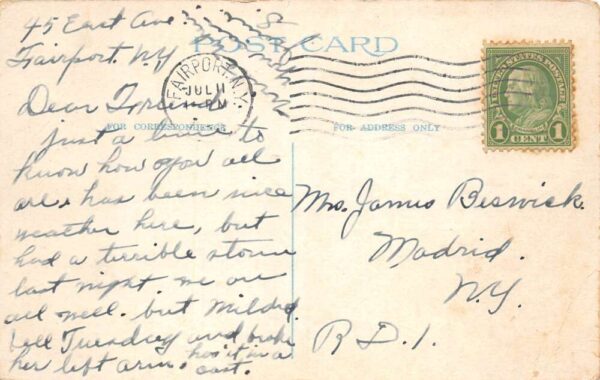 45 East Ave
Fairport. N.Y.
POST CARD
FAIRPORT. N.Y.
JUL 11
PM
UNITED STATES POSTAGE
1 CENT 1
Dear Friend
FOR CORRESPONDENCE
FOR ADDRESS ONLY
just a line to
know how you all
are, has been nice
weather here, but
had a terrible storm
last night. we are
all well. but Mildred
fell Tuesday and broke
her left arm. has it in a
cast.
Mrs. James Beswick.
Madrid.
N.Y.
R.D.1.